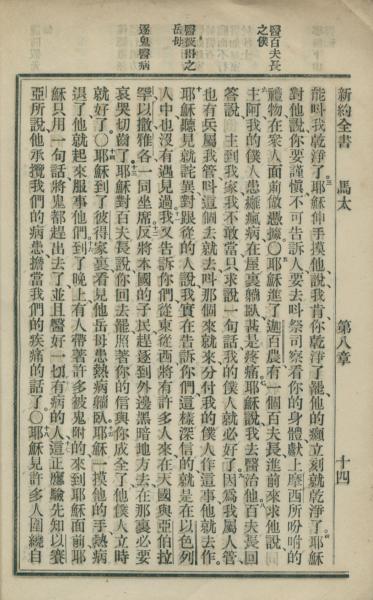 醫百夫長
之僕
醫彼得之
岳母
逐鬼醫病
新約全書 馬太 第八章 十四
能呌我乾淨了耶穌伸手摸他說我肯你乾淨了罷他的癩立刻就乾淨了耶穌
對他說你要謹愼不可告訴人要去呌祭司察看你的身體獻上摩西所吩咐的
禮物在衆人面前做憑據○耶穌進了迦百農有一個百夫長進前來求他說
主阿我的僕人患癱瘋病在屋裏躺臥甚是疼痛耶穌說我去醫治他百夫長回
答說主到我家我不敢當只求說一句話我的僕人就必好了因爲我屬人管
也有兵屬我管呌這個去就去呌那個來就來分付我的僕人作這事他就去作
耶穌聽見就詫異對跟從的人說我實在告訴你們這樣深信的就是在以色列
人中也沒有遇見過我又告訴你們從東從西將有許多人來在天國與亞伯拉
罕以撒雅各一同坐席反將本國的子民趕逐到外邊黑暗地方去在那裏必要
哀哭切齒了耶穌對百夫長說你回去罷照著你的信與你成全了他僕人立時
就好了○耶穌到了彼得家裏看見他岳母患熱病躺臥耶穌一摸他的手熱病
退了他就起來服事他們到了晚上有人帶著許多被鬼附的來到耶穌面前耶
穌只用一句話將鬼都趕出去了並且醫好一切有病的人這正應驗先知以賽
亞所說他承攬我們的病患擔當我們的疾痛的話了○耶穌見許多人圍繞自